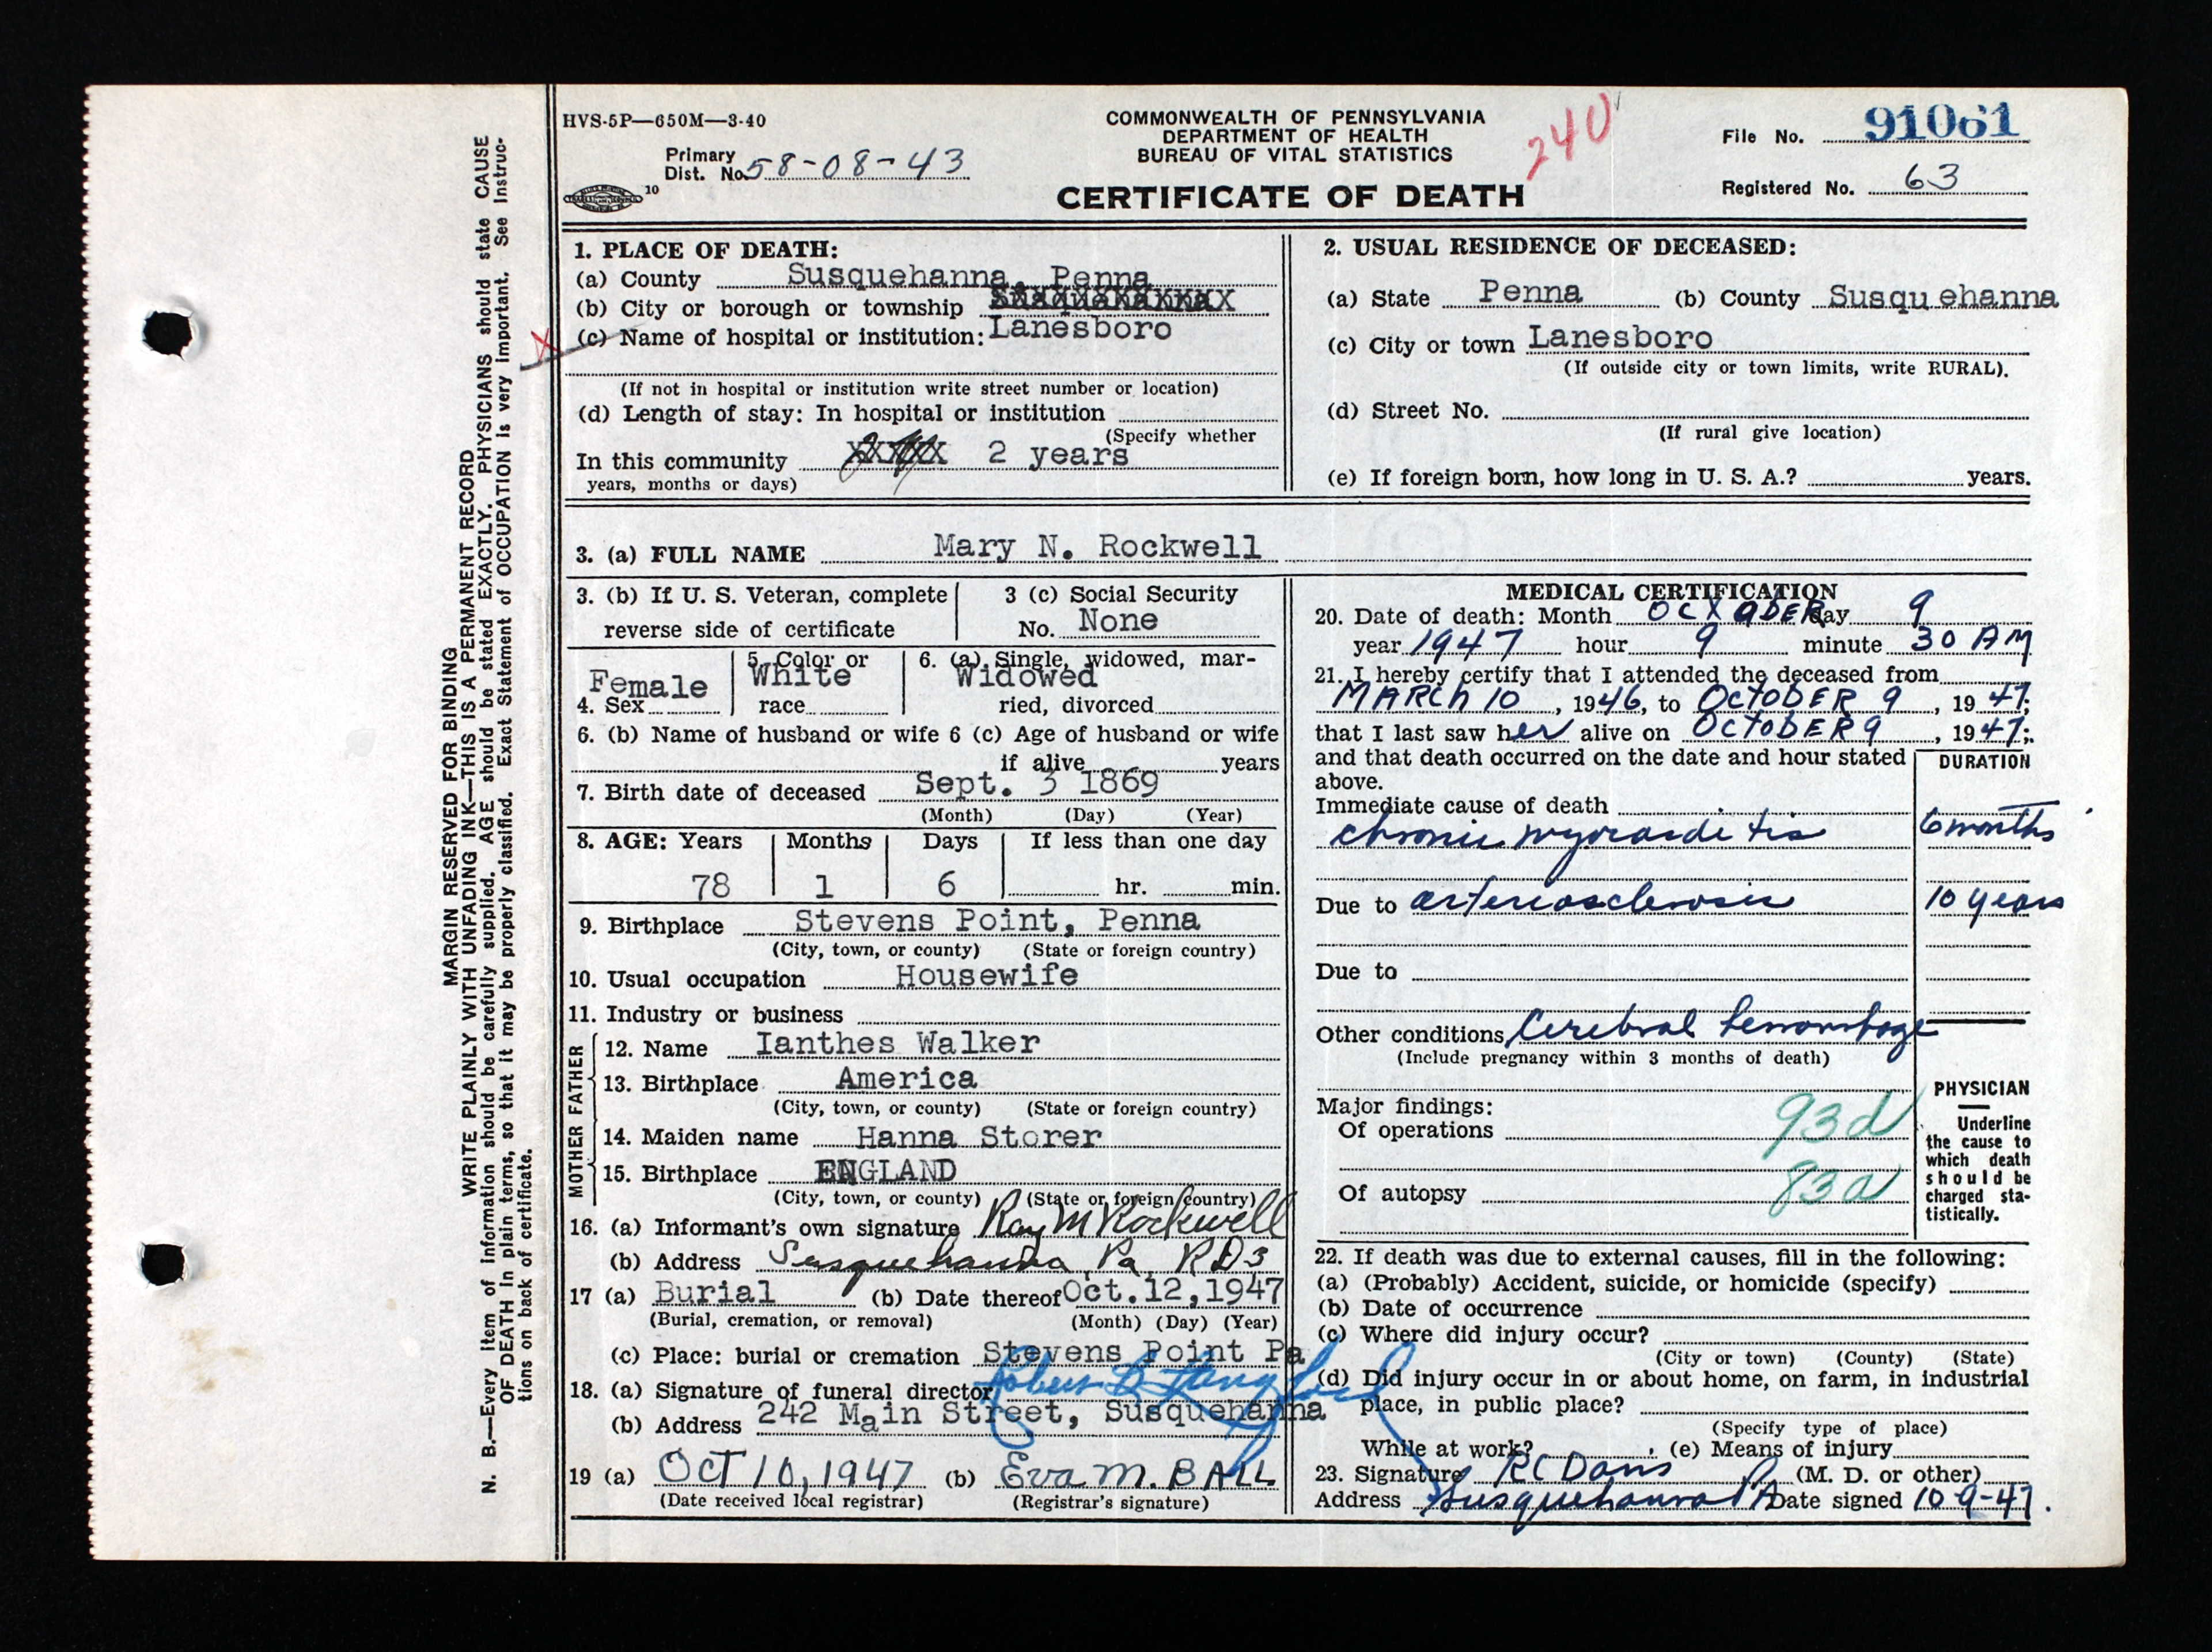 HVS-5P—650M—3-40
COMMONWEALTH OF PENNSYLVANIA
DEPARTMENT OF HEALTH
BUREAU OF VITAL STATISTICS
CERTIFICATE OF DEATH
240
Primary
Dist. No. 58-08-43
10
File No. 91061
Registered No. 63
MARGIN RESERVED FOR BINDING
WRITE PLAINLY WITH UNFADING INK—THIS IS A PERMANENT RECORD
N. B.—Every item of information should be carefully supplied. AGE should be stated EXACTLY. PHYSICIANS should state CAUSE
OF DEATH in plain terms, so that it may be properly classified. Exact Statement of OCCUPATION is very important. See Instruc-
tions on back of certificate.
1. PLACE OF DEATH:
(a) County Susquehanna, Penna
(b) City or borough or township
(c) Name of hospital or institution: Lanesboro
(If not in hospital or institution write street number or location)
(d) Length of stay: In hospital or institution
(Specify whether
In this community 2 years
years, months or days)
2. USUAL RESIDENCE OF DECEASED:
(a) State Penna (b) County Susquehanna
(c) City or town Lanesboro
(If outside city or town limits, write RURAL).
(d) Street No.
(If rural give location)
(e) If foreign born, how long in U. S. A.? years.
3. (a) FULL NAME Mary N. Rockwell
3. (b) If U. S. Veteran, complete
reverse side of certificate
3 (c) Social Security
No. None
4. Sex Female
5. Color or
race White
6. (a) Single, widowed, mar-
ried, divorced Widowed
6. (b) Name of husband or wife 6 (c) Age of husband or wife
if alive years
7. Birth date of deceased Sept. 3 1869
(Month) (Day) (Year)
8. AGE: Years Months Days If less than one day
78 1 6 hr. min.
9. Birthplace Stevens Point, Penna
(City, town, or county) (State or foreign country)
10. Usual occupation Housewife
11. Industry or business
FATHER
12. Name Ianthes Walker
13. Birthplace America
(City, town, or county) (State or foreign country)
MOTHER
14. Maiden name Hanna Storer
15. Birthplace ENGLAND
(City, town, or county) (State or foreign country)
16. (a) Informant's own signature Ray M Rockwell
(b) Address Susquehanna, Pa, RD3
17 (a) Burial (b) Date thereof Oct.12,1947
(Burial, cremation, or removal) (Month) (Day) (Year)
(c) Place: burial or cremation Stevens Point Pa
18. (a) Signature of funeral director
(b) Address 242 Main Street, Susquehanna
19 (a) OCT 10, 1947 (b) Eva M. BALL
(Date received local registrar) (Registrar's signature)
MEDICAL CERTIFICATION
20. Date of death: Month OCTOBER day 9
year 1947 hour 9 minute 30 AM
21. I hereby certify that I attended the deceased from
MARCH 10, 1946, to OCTOBER 9, 1947;
that I last saw her alive on OCTOBER 9, 1947;
and that death occurred on the date and hour stated
above.
DURATION
Immediate cause of death
chronic myocarditis 6 months
Due to arteriosclerosis 10 years
Due to
Other conditions Cerebral hemorrhage
(Include pregnancy within 3 months of death)
Major findings:
Of operations 93d
Of autopsy 83a
PHYSICIAN
Underline
the cause to
which death
should be
charged sta-
tistically.
22. If death was due to external causes, fill in the following:
(a) (Probably) Accident, suicide, or homicide (specify)
(b) Date of occurrence
(c) Where did injury occur?
(City or town) (County) (State)
(d) Did injury occur in or about home, on farm, in industrial
place, in public place?
(Specify type of place)
While at work? (e) Means of injury
23. Signature RC Davis (M. D. or other)
Address Susquehanna PA Date signed 10-9-47.